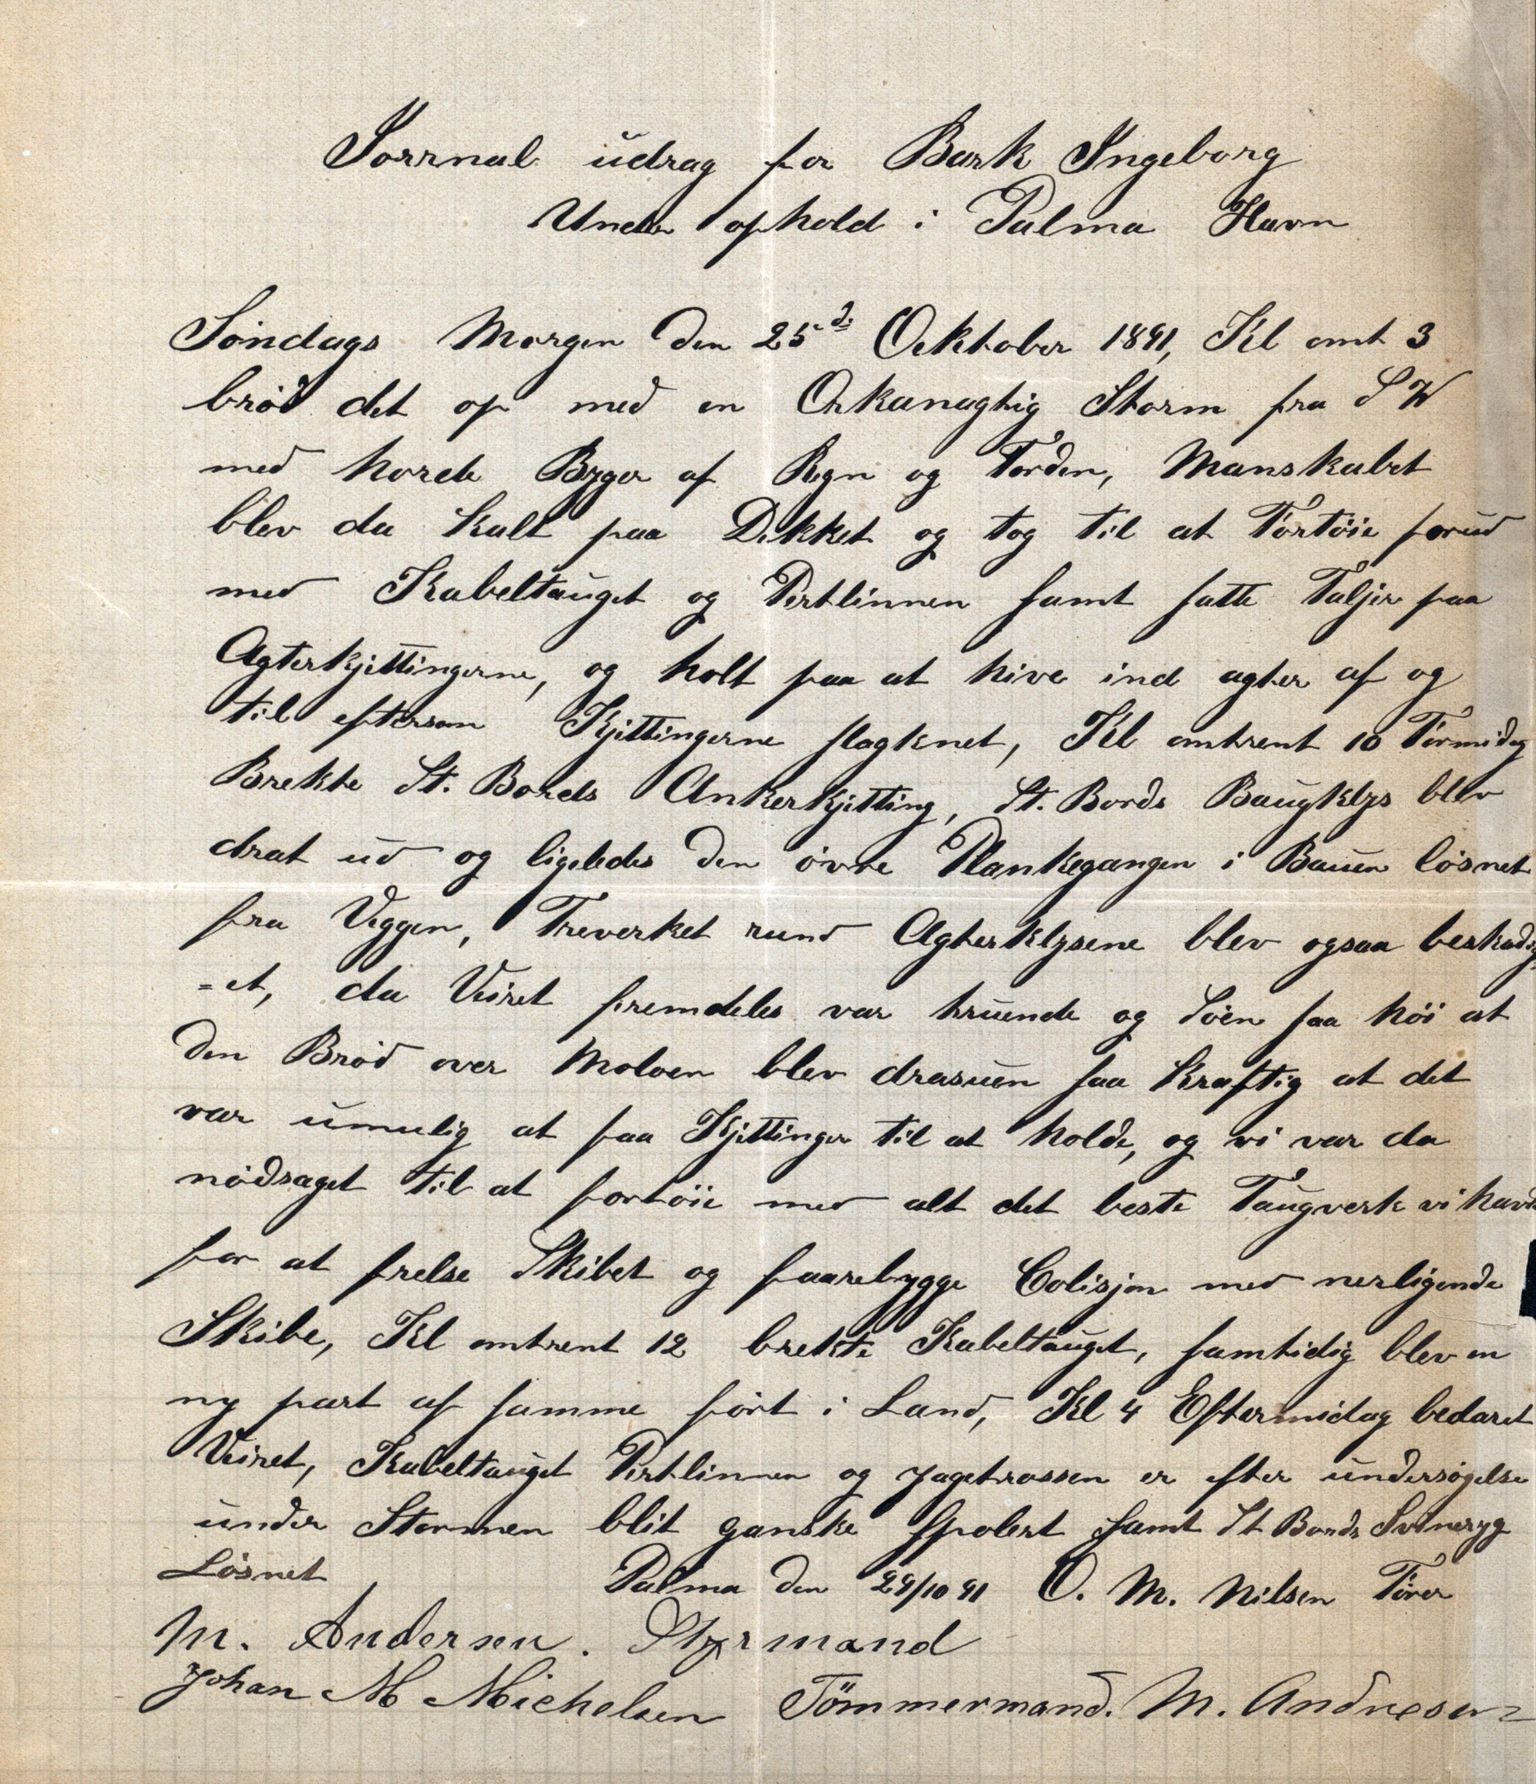 Jorrnal udrag for Bark Ingeborg
Under ophold i Palma Havn
Søndags Morgen den 25de Ocktober 1891, Kl omt 3
brød det op med en Orkanagtig Storm fra S W
med horde Byger af Regn og Torden, Manskabet
blev da kalt paa Dekket og tog til at Fortøie forud
med Kabeltauget og Pertlinnen samt satte Taljer paa
Agterkjettingerne, og holt paa at hive ind agter af og
til eftersom Kjettingerne slagknet, Kl omtrent 10 Formidag
Brekte St. Bords Ankerkjetting, St. Bords Baugklys blev
drat ud og ligeledes den øvre Plankegangen i Bauen løsnet
fra Veggen, Treverket rund Agterklysene blev ogsaa beskadig
=et, da Veiret fremdeles var truende og Søen saa høi at
den Brød over Moloen blev drasuen saa kraftig at det
var umulig at faa Kjettinger til at holde, og vi var da
nødsaget til at fortøie med alt det beste Taugverk vi havde
for at frelse Skibet og faarebygge Colisjon med nerligende
Skibe, Kl omtrent 12 brekte Kabeltauget, samtidig blev en
ny part af samme ført i Land, Kl 4 Eftermidag bedaret
Veiret, Kabeltauget Pertlinnen og Jagetrossen er efter undersøgelse
under Stormen blit ganske spolert samt St Bords Svineryg
Løsnet Palma den 29/10 91 O. M. Nilsen Fører
M. Andersen. Styrmand
Johan M Michelsen Tömmermand. M. Andresen